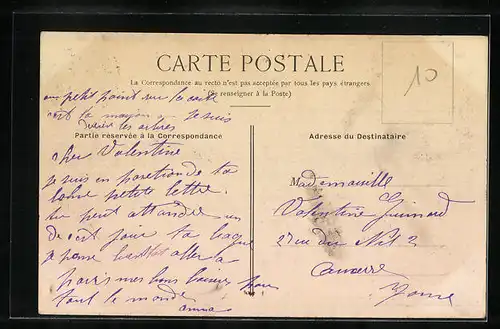 CARTE POSTALE
La Correspondance au recto n'est pas acceptée par tous les pays étrangers
(Se renseigner à la Poste)
10
un petit point sur le coité
est la mayon je suis
deriere les arbres
Partie réservée à la Correspondance
Adresse du Destinataire
Cher Valentine
je suis en posetion de ta
bonne petite lettre.
tu peut attandre un
de cest jour ta bague
je panse bientot aller a
paris mes bons baisers pour
tout le monde
anna
Mademoiselle
Valentine Guimard
27 rue du Nil 2
Auxerre
Yonne